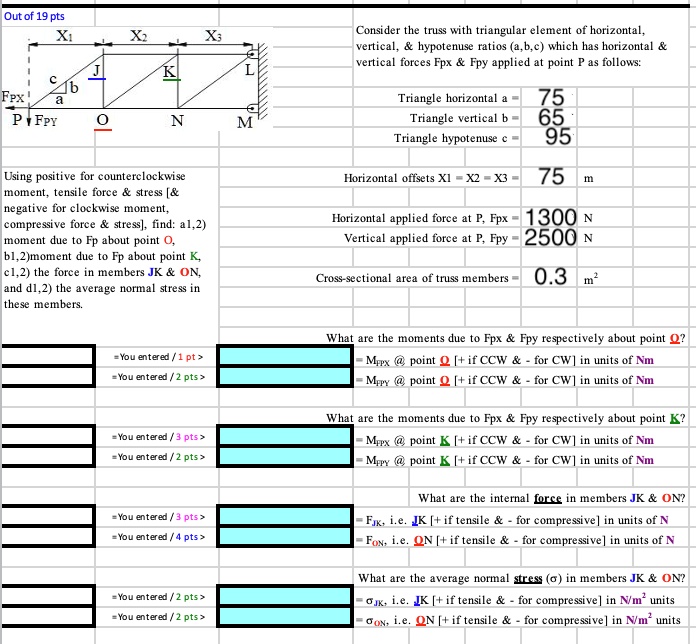 Out of 19 pts
X1 X2 X3
J K L
c b
a
FPX
P FPY O N M
Consider the truss with triangular element of horizontal,
vertical, & hypotenuse ratios (a,b,c) which has horizontal &
vertical forces Fpx & Fpy applied at point P as follows:
Triangle horizontal a = 75
Triangle vertical b = 65
Triangle hypotenuse c = 95
Using positive for counterclockwise
moment, tensile force & stress [&
negative for clockwise moment,
compressive force & stress], find: a1,2)
moment due to Fp about point O,
b1,2)moment due to Fp about point K,
c1,2) the force in members JK & ON,
and d1,2) the average normal stress in
these members.
Horizontal offsets X1 = X2 = X3 = 75 m
Horizontal applied force at P, Fpx = 1300 N
Vertical applied force at P, Fpy = 2500 N
Cross-sectional area of truss members = 0.3 m²
What are the moments due to Fpx & Fpy respectively about point O?
=You entered / 1 pt > = MFPX @ point O [+ if CCW & - for CW] in units of Nm
=You entered / 2 pts > = MFPY @ point O [+ if CCW & - for CW] in units of Nm
What are the moments due to Fpx & Fpy respectively about point K?
=You entered / 3 pts > = MFPX @ point K [+ if CCW & - for CW] in units of Nm
=You entered / 2 pts > = MFPY @ point K [+ if CCW & - for CW] in units of Nm
What are the internal force in members JK & ON?
=You entered / 3 pts > = FJK, i.e. JK [+ if tensile & - for compressive] in units of N
=You entered / 4 pts > = FON, i.e. ON [+ if tensile & - for compressive] in units of N
What are the average normal stress (σ) in members JK & ON?
=You entered / 2 pts > = σJK, i.e. JK [+ if tensile & - for compressive] in N/m² units
=You entered / 2 pts > = σON, i.e. ON [+ if tensile & - for compressive] in N/m² units